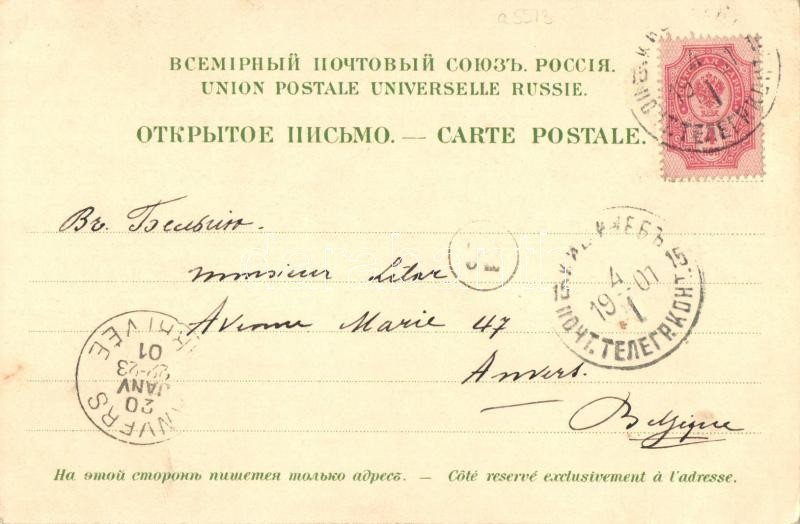 a5513
ВСЕМІРНЫЙ ПОЧТОВЫЙ СОЮЗЪ. РОССІЯ.
UNION POSTALE UNIVERSELLE RUSSIE.
ОТКРЫТОЕ ПИСЬМО. — CARTE POSTALE.
Въ Бельгію.
Monsieur
Avenue Marie 47
Anvers.
Belgique
КІЕВЪ
15
15
4
19 01
I
ПОЧТ. ТЕЛЕГР. КОНТ.
ПОЧТ. ТЕЛЕГР. КОНТ.
ANVERS
ARRIVÉE
20
JANV
22-23
01
На этой сторонѣ пишется только адресъ. — Côté reservé exclusivement à l'adresse.